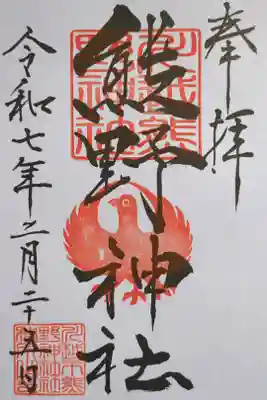 奉拝
熊野神社
令和七年二月二十五日